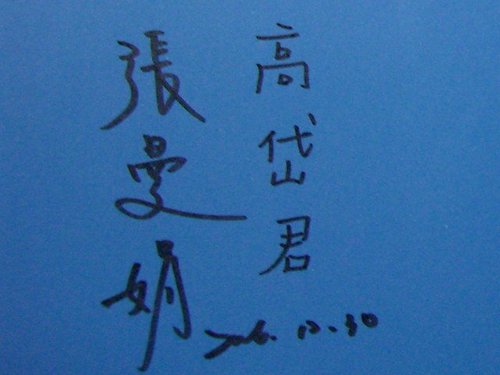 高岱君
張曼娟
2006.12.30